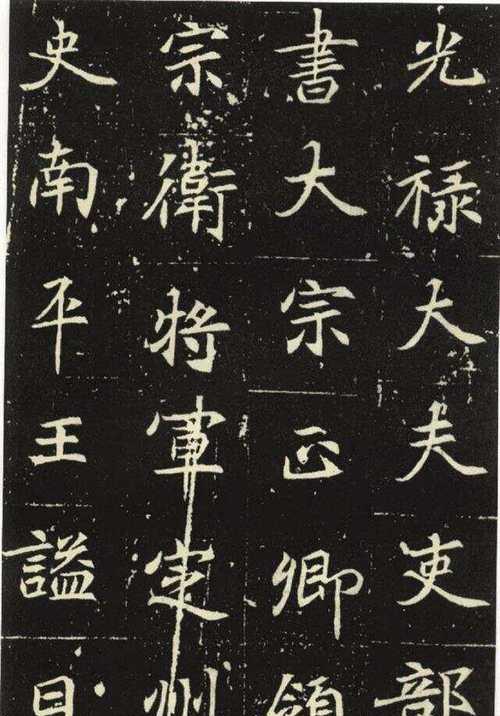 光祿大夫吏部
書大宗正卿領
宗衛將軍定州
史南平王謚曰